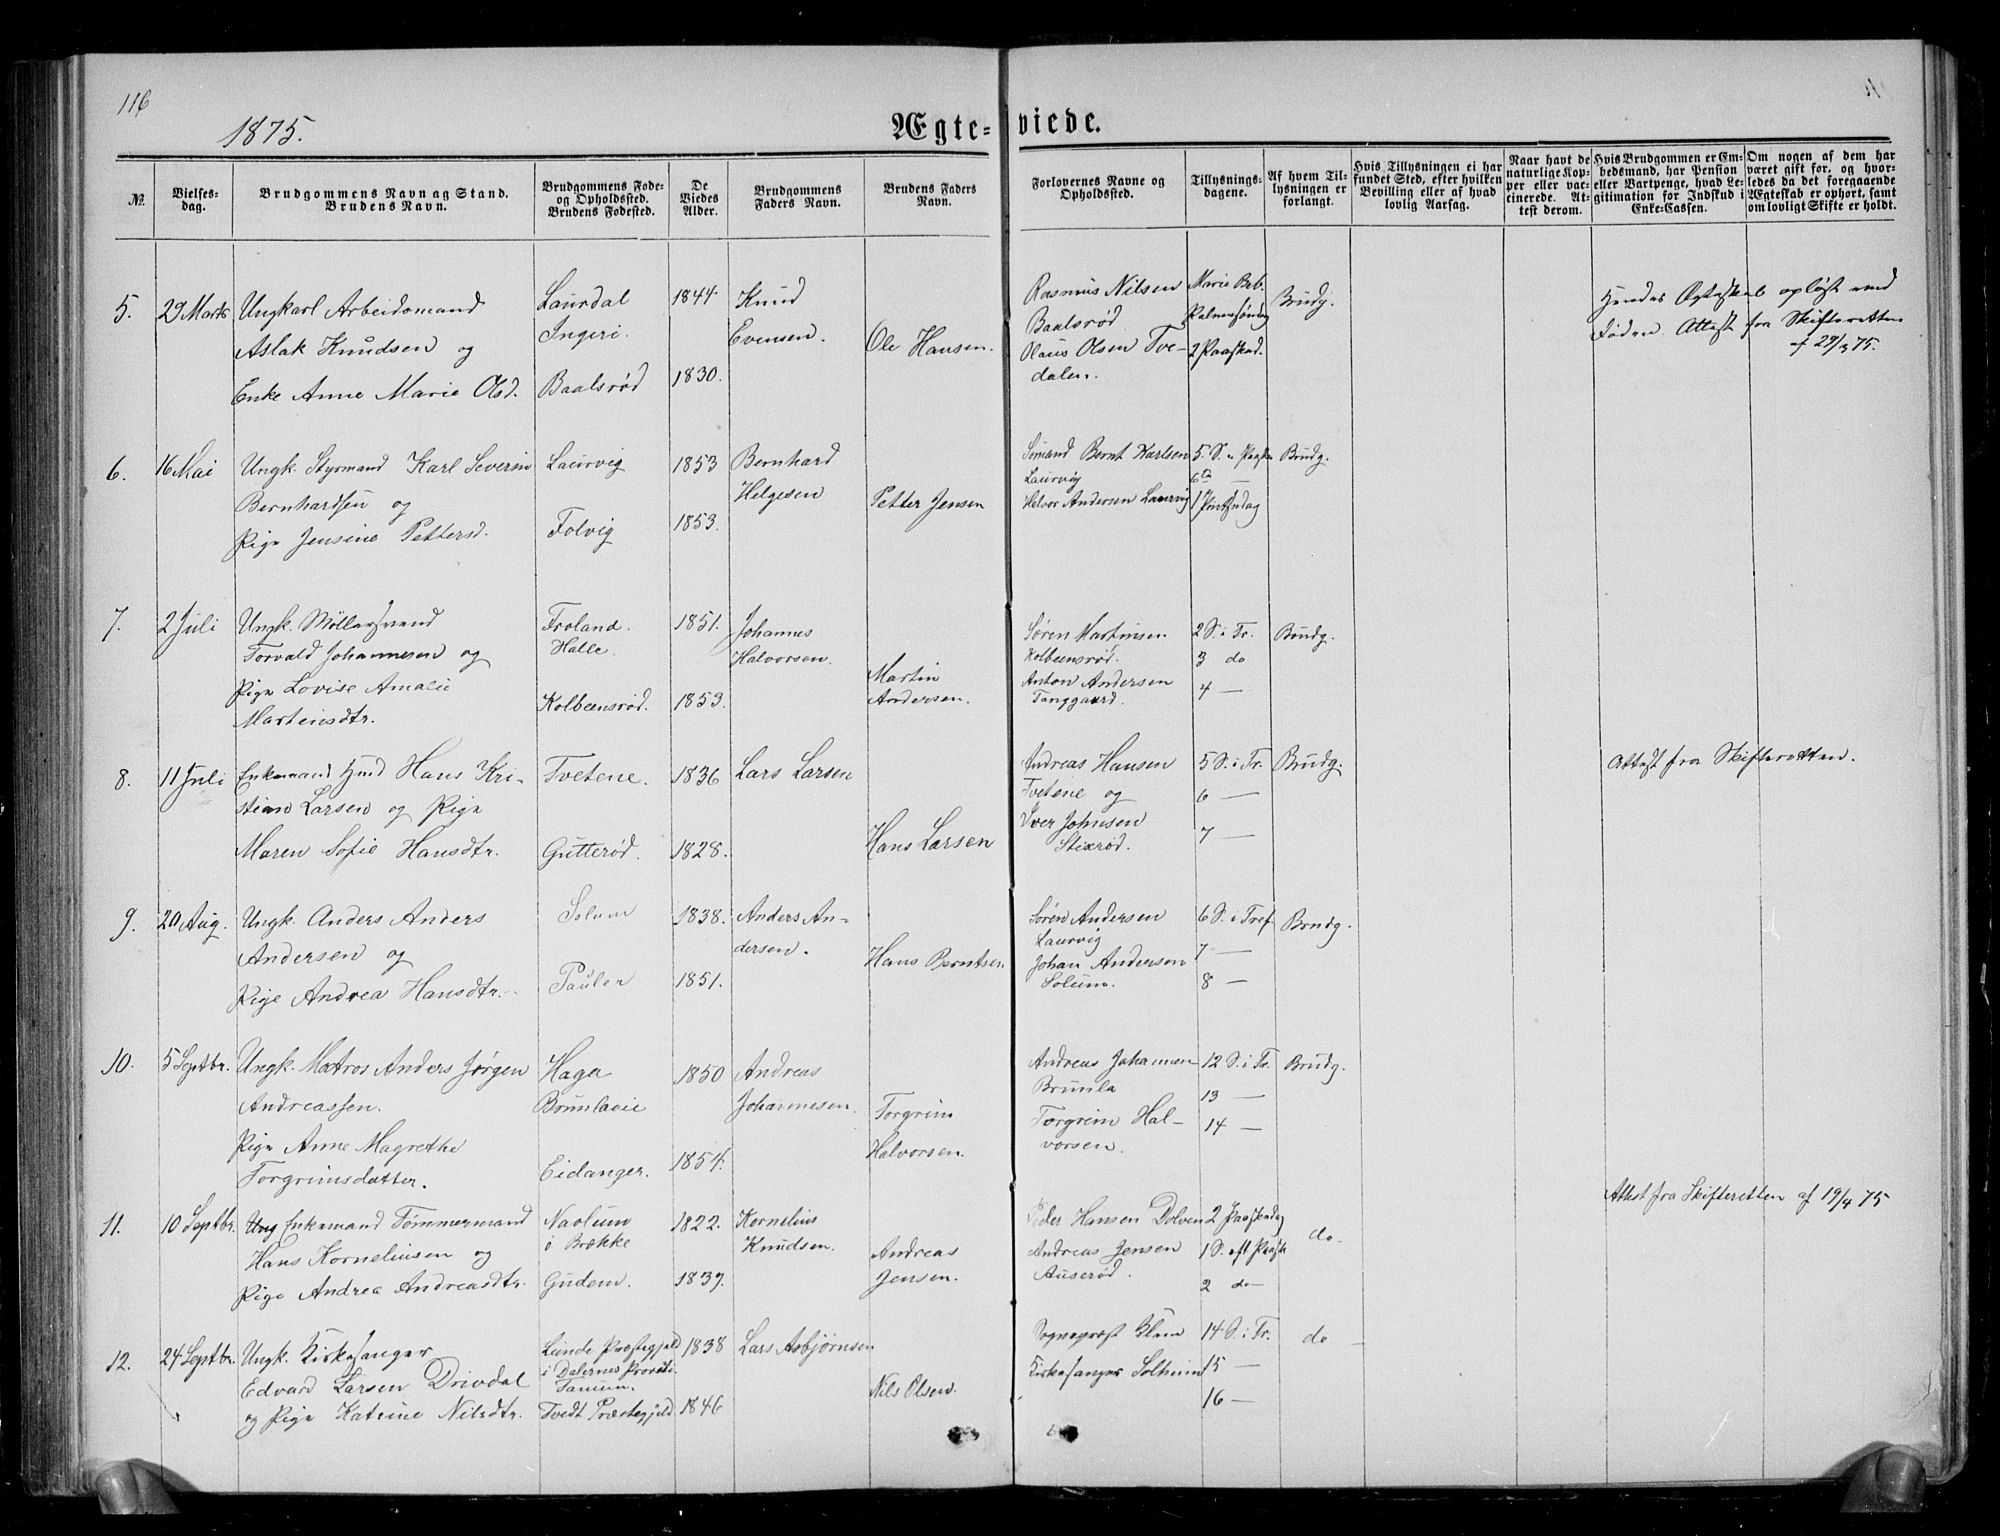 116
1875.
Ægte-viede.
№.
Vielses-
dag.
Brudgommens Navn og Stand.
Brudens Navn.
Brudgommens Føde-
og Opholdssted.
Brudens Fødested.
De
Viedes
Alder.
Brudgommens
Faders Navn.
Brudens Faders
Navn.
Forlovernes Navne og
Opholdssted.
Tillysnings-
dagene.
Af hvem Til-
lysningen er
forlangt.
Hvis Tillysningen ei har
fundet Sted, efter hvilken
Bevilling eller af hvad
lovlig Aarsag.
Naar havt de
naturlige Kop-
per eller vac-
cinerede. At-
test derom.
Hvis Brudgommen er Em-
bedsmand, har Pension
eller Vartpenge, hvad Le-
gitimation for Indskud i
Enke-Cassen.
Om nogen af dem har
været gift før, og hvor-
ledes da det foregaaende
Ægteskab er ophørt, samt
om lovligt Skifte er holdt.
5. 29 Marts
Ungkarl Arbeidsmand
Aslak Knudsen og
Enke Anne Marie Olsd.
Laurdal
Ingeri.
Baalsrød
1844.
1830.
Knud
Evensen.
Ole Hansen.
Rasmus Nilsen
Baalsrød
Olaus Olsen Tve-
dalen.
Marie Beb.
Palmesøndag
2 Paaskad.
Brudg.
Hendes Ægteskab opløst ved
Døden. Attest fra Skifteretten
af 29/3 75.
6. 16 Mai
Ungk. Styrmand Karl Severin
Bernhardsen og
Pige Jensine Pettersd.
Laurvig
Folvig
1853
1853.
Bernhard
Helgesen
Petter Jensen
Sømand Bernt Karlsen
Laurvig
Halvor Andersen Laurvig
5. S. e Paaske
6te —
1 Pintsedag
Brudg.
7. 2 Juli
Ungk. Møllersvend
Torvald Johannesen og
Pige Lovise Amalie
Martinsdtr.
Froland.
Halle.
Kolbeensrød.
1851.
1853.
Johannes
Halvorsen.
Martin
Andersen.
Søren Martinsen
Kolbeensrød.
Anton Andersen
Tanggaard.
2 S. i Tr.
3 do
4 —
Brudg.
8. 11 Juli
Enkemand Hmd Hans Kri-
stian Larsen og Pige
Maren Sofie Hansdtr.
Tvetene.
Gutterød.
1836
1828.
Lars Larsen
Hans Larsen
Andreas Hansen
Tvetene og
Iver Johnsen
Stixrød.
5 S. i Tr.
6 —
7 —
Brudg.
Attest fra Skifteretten.
9. 20 Aug.
Ungk. Anders Anders
Andersen og
Pige Andrea Hansdtr.
Solum
Pauler
1838.
1851.
Anders An-
dersen.
Hans Berntsen
Søren Andersen
Laurvig
Johan Andersen
Solum.
6 S. i Tref.
7 —
8 —
Brudg.
10. 5 Septbr.
Ungk. Matros Anders Jørgen
Andreassen.
Pige Anne Magrethe
Torgrimsdatter.
Hagen
Brunlavie
Eidanger.
1850
1854.
Andreas
Johannesen.
Torgrim
Halvorsen.
Andreas Johannen
Brunla
Torgrim Hal-
vorsen.
12 S. i Tr.
13 —
14 —
Brudg.
11. 10 Septbr.
Ung Enkemand Tømmermand
Hans Korneliusen og
Pige Andrea Andreasdtr.
Naolum
i Brække
Gudem.
1822.
1839.
Kornelius
Knudsen.
Andreas
Jensen.
Peder Hansen Dolven
Andreas Jensen
Auserød.
2 Paaskedag
1 S. eft Paaske
2 do —
do.
Attest fra Skifteretten af 19/4 75
12. 24 Septbr.
Ungk. Kirkesanger
Edvard Larsen Drivdal
og Pige Katrine Nilsdtr.
Lunde Præstegjeld
i Dalernes Provsti
Tanum.
Tvedt Præstegjeld
1838
1846
Lars Asbjørnsen
Nils Olsen.
Sogneprest Klem
Kirkesanger Solheim
14 S. i Tr.
15 —
16 —
do —